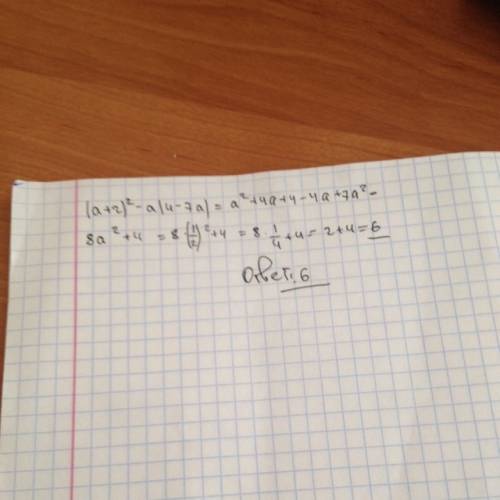 (a+2)²-a(4-7a)= a²+4a+4-4a+7a²=
8a²+4 = 8·(1/2)²+4 = 8·1/4+4= 2+4=6
Ответ: 6